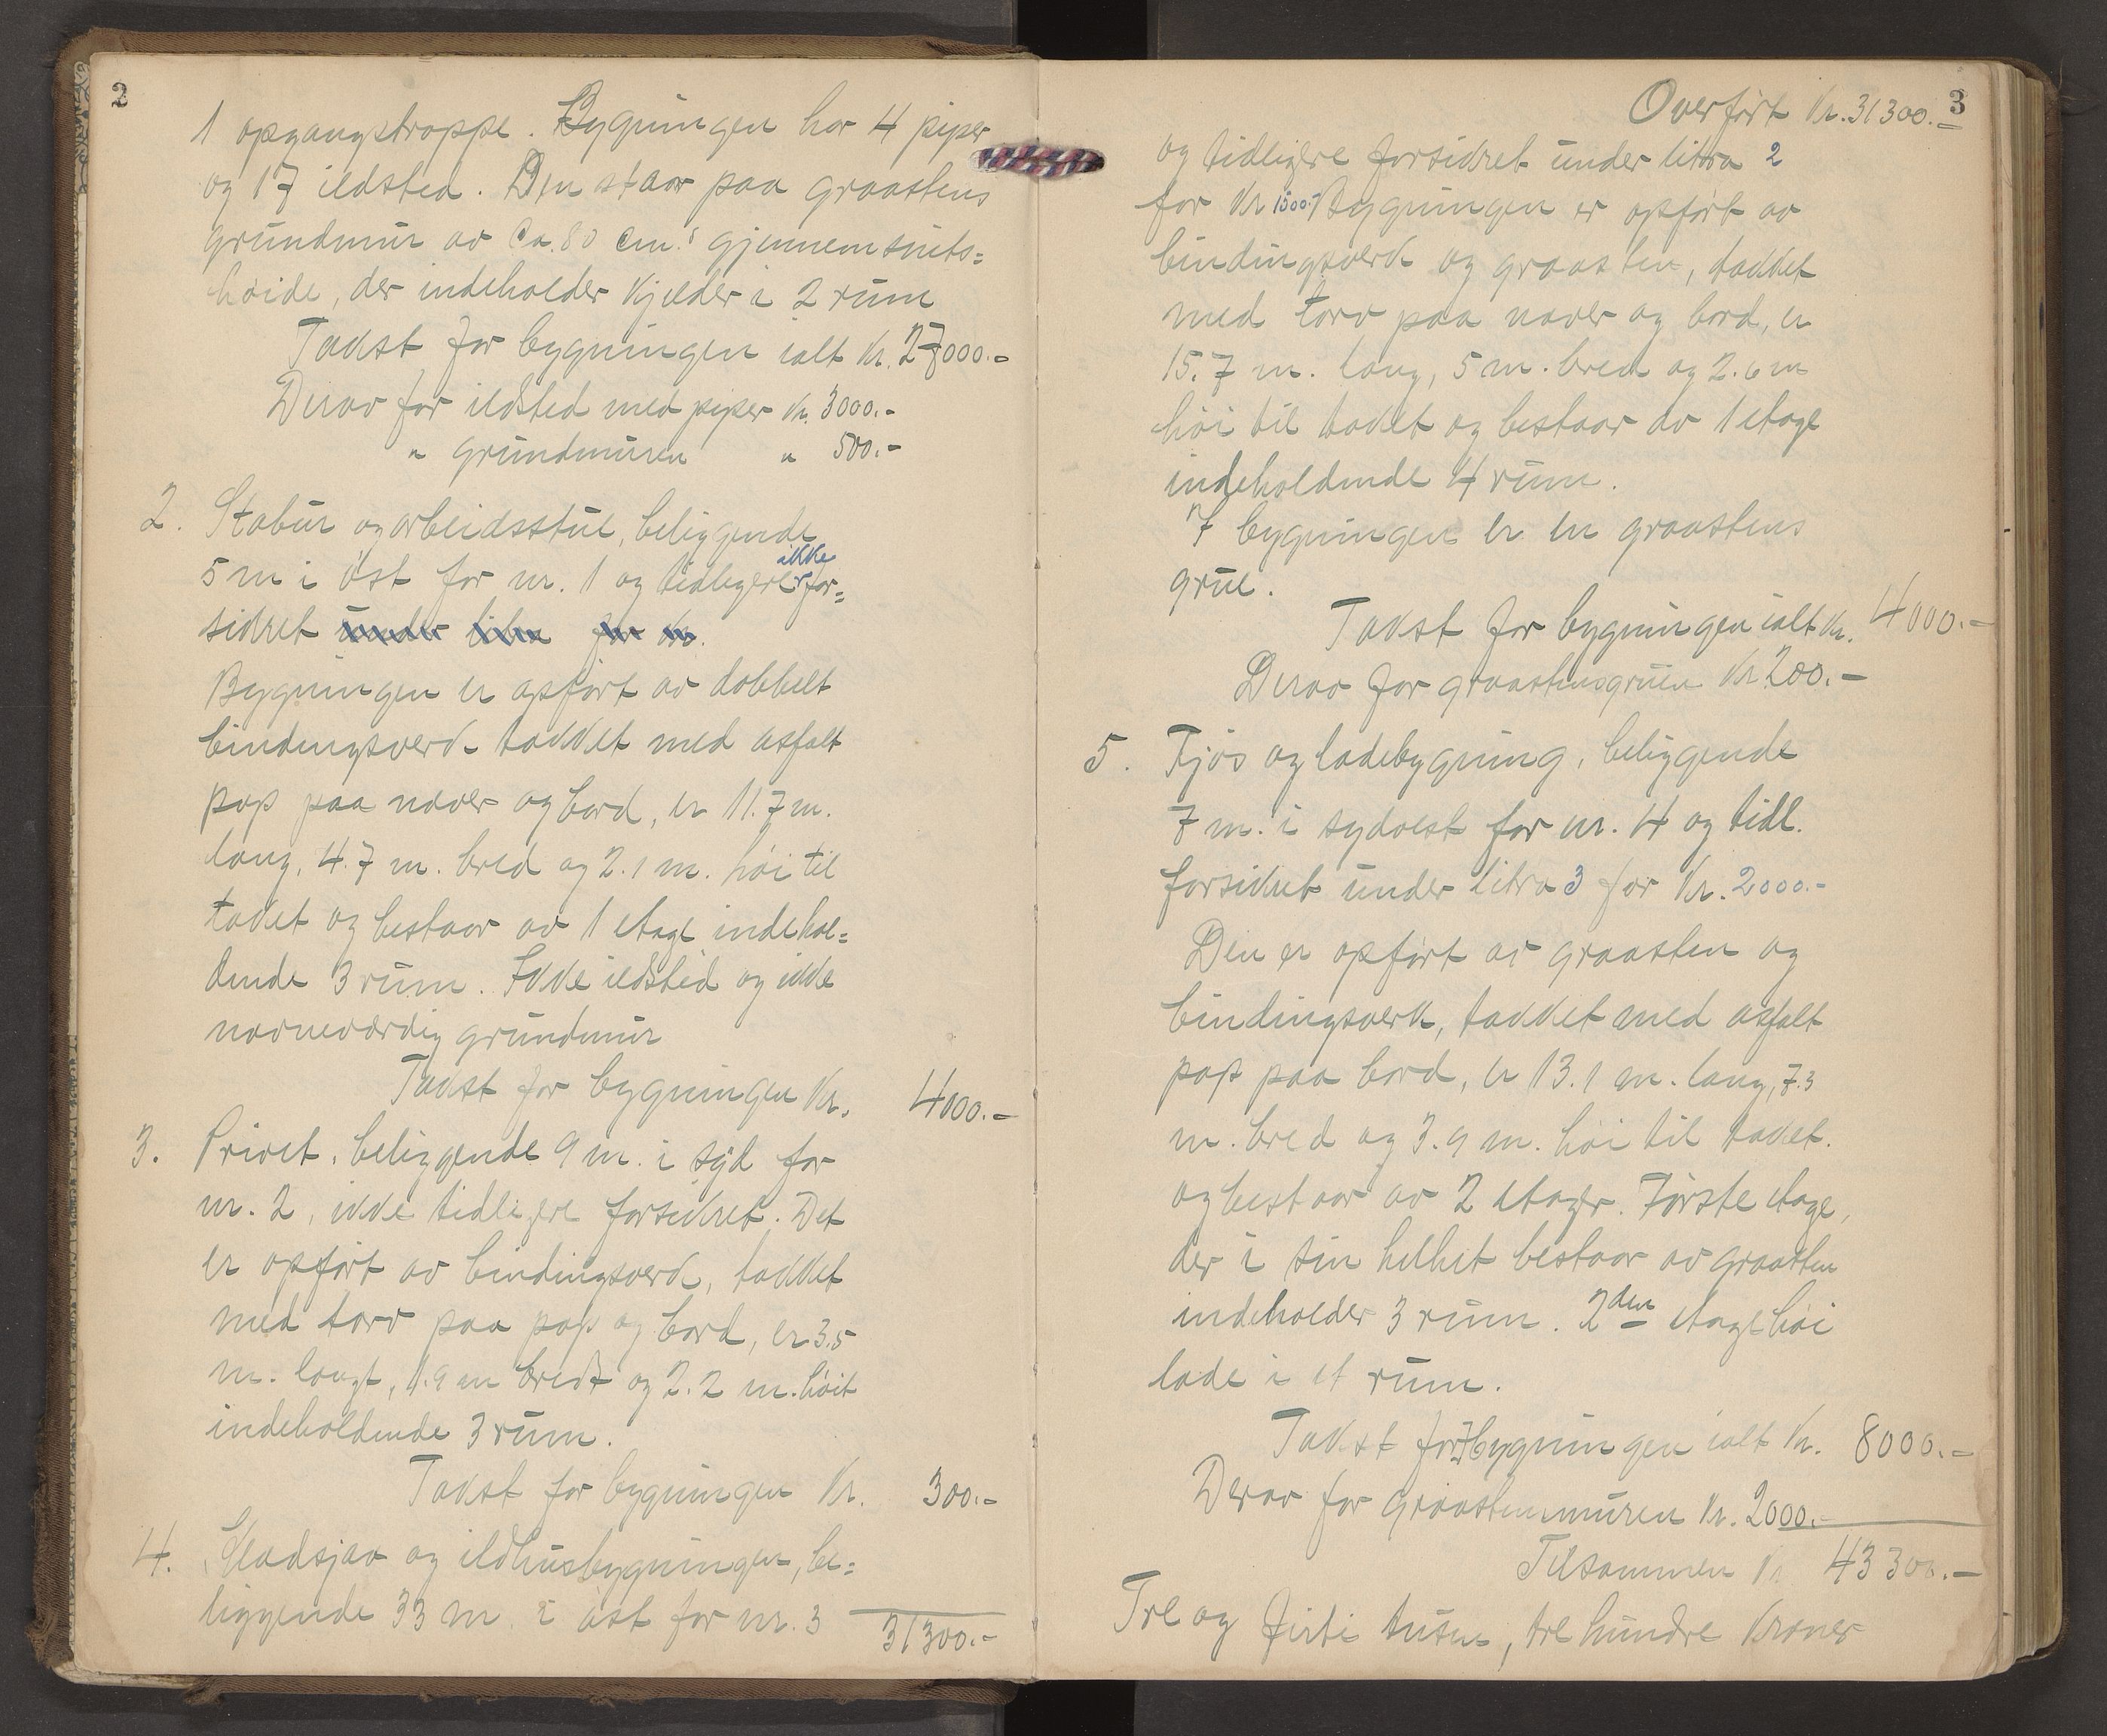 2
1 opgangstrappe. Bygningen har 4 piper
og 17 ildsted. Den staar paa graastens
grundmur av Ca. 80 cm.s gjennemsnits=
høide, der indeholder kjelder i 2 rum
Takst for bygningen ialt Kr. 27000.-
Derav for ildsted med piper Kr. 3000.-
" grundmuren " 500.-
2. Stabur og arbeidsstue, beliggende
ikke
5 m i øst for nr. 1 og tidligere for=
sikret under litra for Kr.
Bygningen er opført av dobbelt
bindingsverk takket med asfalt
pap paa never og bord, er 11.7 m.
lang, 4.7 m. bred og 2.1 m. høi til
taket og bestaar av 1 etage indehol=
dende 3 rum. Ikke ildsted og ikke
navneværdig grundmur
Takst for bygningen Kr. 4000.-
3. Privet, beliggende 9 m. i syd for
nr. 2, ikke tidligere forsikret. Det
er opført av bindingsverk, takket
med torv paa pap og bord, er 3.5
m. langt, 1.9 m bredt og 2.2 m. høit
indeholdende 3 rum.
Takst for bygningen Kr. 300.-
4. Vedsjaa og ildhusbygningen, be=
liggende 33 m i øst for nr. 3
31300.-
3
Overført Kr. 31300.-
og tidligere forsikret under litra 2
for Kr 1500.- Bygningen er opført av
bindingsverk og graasten, takket
med torv paa never og bord, er
15.7 m. lang, 5 m. bred og 2.6 m
høi til taket og bestaar av 1 etage
indeholdende 4 rum.
I bygningen er en graastens
grue.
Takst for bygningen ialt Kr. 4000.-
Derav for graastensgruen Kr. 200.-
5. Fjøs og ladebygning, beliggende
7 m. i sydvest for nr. 4 og tidl.
forsikret under litra 3 for Kr. 2000.-
Den er opført av graasten og
bindingsverk, takket med asfalt
pap paa bord, er 13.1 m. lang, 7.3
m. bred og 3.9 m. høi til taket.
og bestaar av 2 etager. Første etage,
der i sin helhet bestaar av graasten
indeholder 3 rum. 2den etage høi
lade i et rum.
Takst for bygningen ialt Kr. 8000.-
Derav for graastenmuren Kr. 2000.-
Tilsammen Kr 43300.-
Tre og firti tusen, tre hundre Kroner